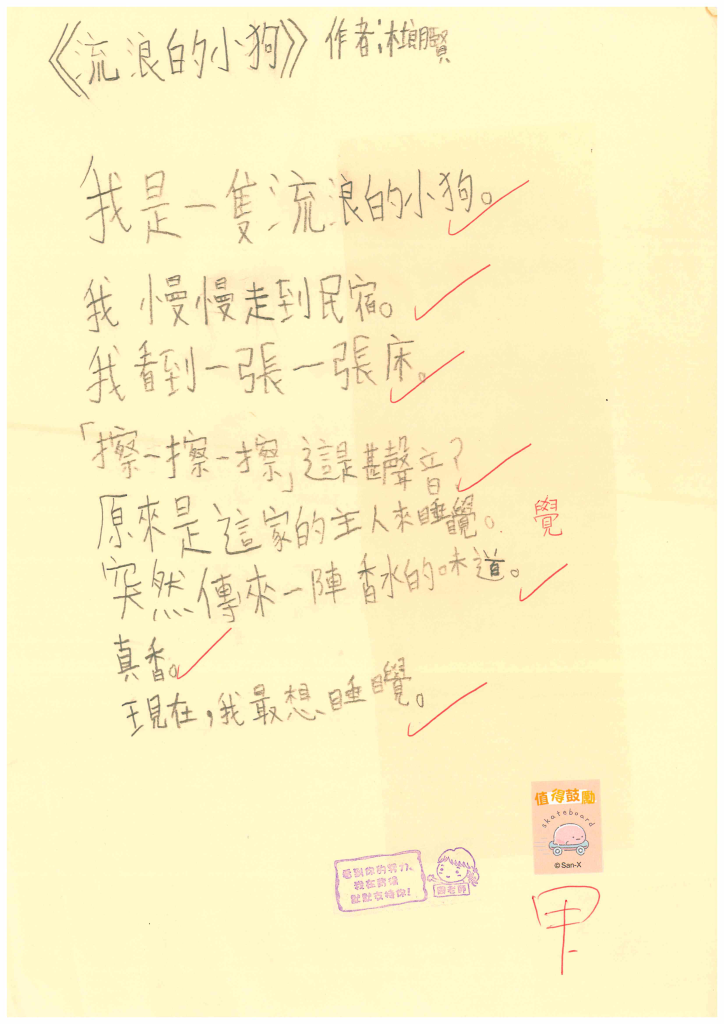 《流浪的小狗》 作者：林朗賢
我是一隻流浪的小狗。
我慢慢走到民宿。
我看到一張一張床。
「擦一擦一擦」這是甚聲音？
原來是這家的主人來睡覺。 覺
突然傳來一陣香水的味道。
真香。
現在，我最想睡覺。
值得鼓勵
skateboard
©San-X
看到你的努力，
我在旁邊
默默支持你！
甲